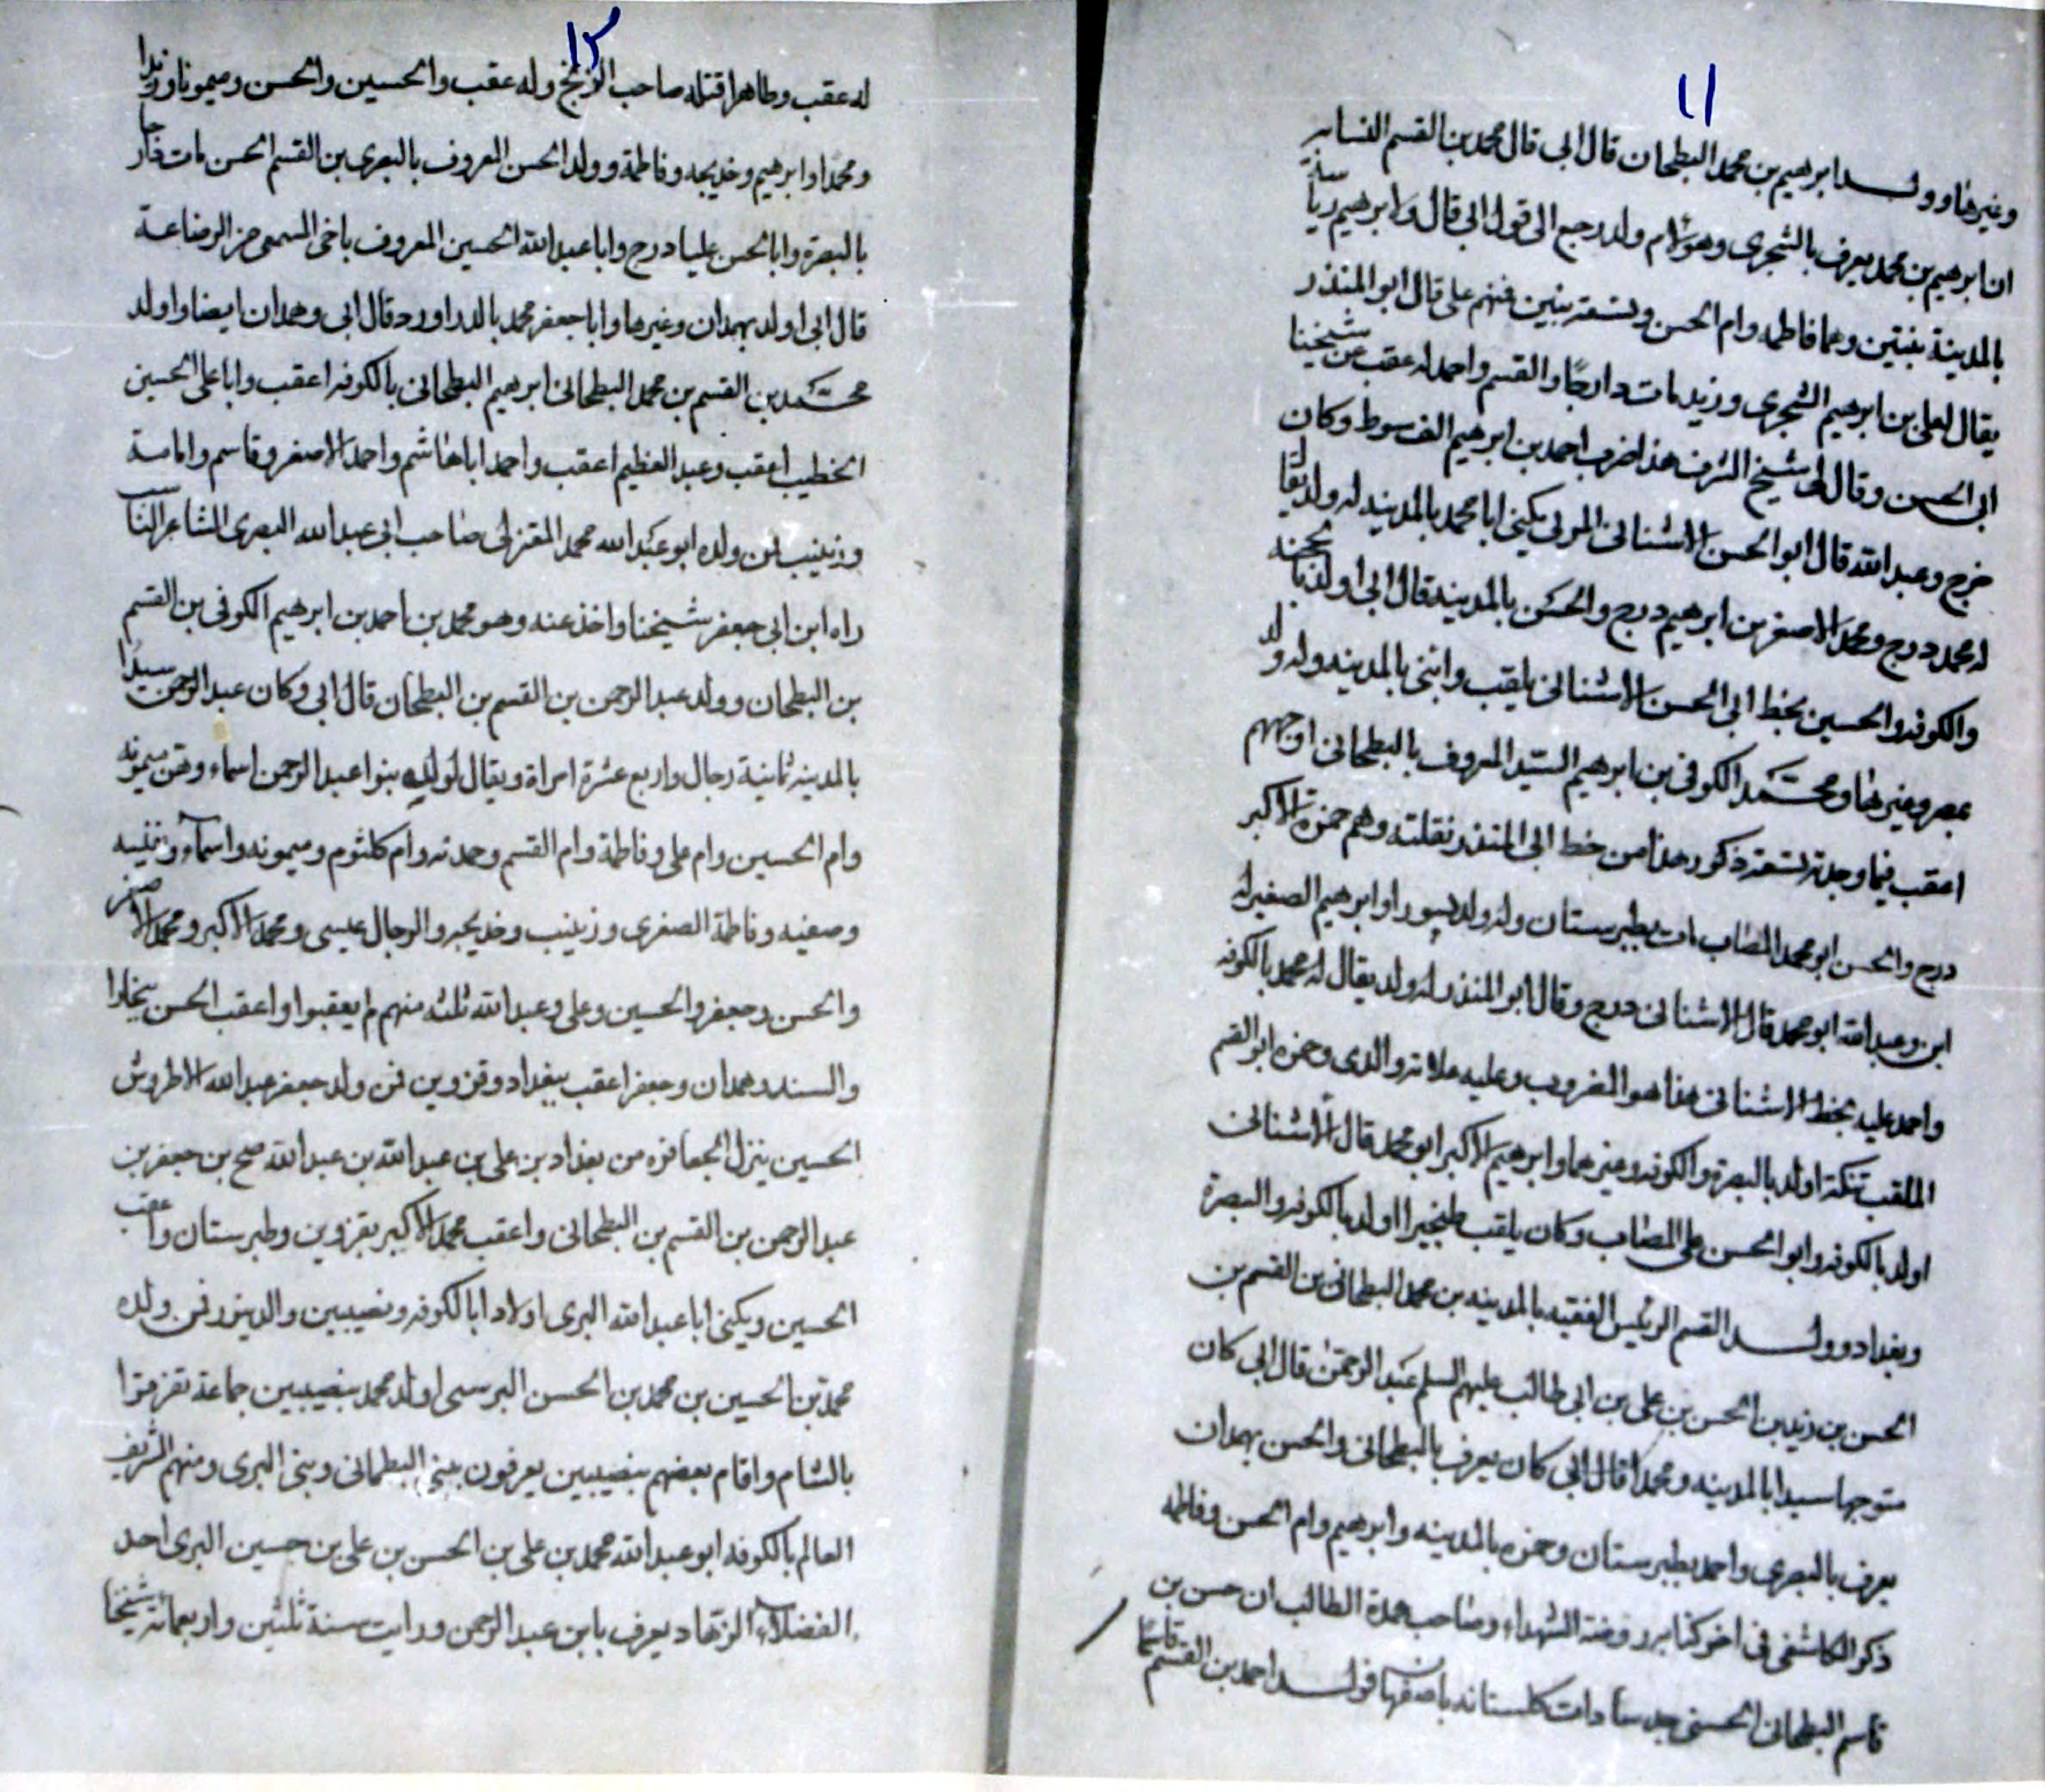 ١١
وغيرها وولـــد ابرهيم بن محمد البطحان قال ابى قال محمد بن القسم النسابه
ان ابرهيم بن محمد يعرف بالشجرى وهو لام ولد رجع الى قول ابى قال ولابرهيم رياسة
بالمدينة بنتين وهما فاطمه وام الحسن وتسعة بنين منهم على قال ابو المنذر
يقال لعلى بن ابرهيم الشجرى وزيد مات دارجًا والقسم واحمد له عقب من شيخنا
ابى الحسن وقال لى شيخ الشرف هذا ضرب احمد بن ابرهيم الف سوط وكان
خرج وعبد الله قال ابو الحسن الاشنانى المولى يكنى ابا محمد بالمدينه له ولد يقال
له محمد درج ومحمد الاصغر بن ابرهيم درج والحسن بالمدينه قال ابى اولد
والكوفه والحسين بخط ابى الحسن الاشنانى يلقب وابنى بالمدينه وله ولد
بمصر وغيرها ومحــمد الكوفى بن ابرهيم السيد المعروف بالبطحانى اوجههم
اعقب فيما وجدته تسعة ذكور هذا من خط ابى المنذر نقلته وهم حمزة الاكبر
درج والحسن ابو محمد المصاب مات بطبرستان وله ولد بسورا وابرهيم الصغير له
ابن وعبد الله ابو محمد قال الاشنانى درج وقال ابو المنذر له ولد يقال له محمد بالكوفه
واحمد عليه بخط الاشنانى هذا هو المضروب وعليه علامة والدى وحمزه ابو القسم
الملقب تنكة اولد بالبصرة والكوفه وغيرهما وابرهيم الاكبر ابو محمد قال الاشنانى
اولد بالكوفه وابو الحسن على المصاب وكان يلقب طنجيرا اولد بالكوفه والبصرة
وبغداد وولــد القسم الرئيس الفقيه بالمدينه بن محمد البطحانى بن القسم بن
الحسن بن زيد بن الحسن بن على بن ابى طالب عليهم السلم عبد الرحمن قال ابى كان
متوجها سيدا بالمدينه ومحمدا قال ابى كان يعرف بالبطحانى والحسن بهمدان
يعرف بالبصرى واحمد بطبرستان وحمزه بالمدينه وابرهيم وام الحسن وفاطمه
ذكر الكاشفى فى اخر كتابه روضة الشهداء وصاحب عمدة الطالب ان حسن بن
قاسم البطحانى الحسنى جد سادات كلستانه باصفهان فولــد احمد بن القسم قاسمًا
١٢
له عقب وطاهرا قتله صاحب الزنج وله عقب والحسين والحسن وميمونا وزيدا
ومحمدا وابرهيم وخديجه وفاطمة وولد الحسن المعروف بالبصرى بن القسم الحسن مات
بالبصرة وابا الحسن عليا درج وابا عبد الله الحسين المعروف باخى المسمعى من الرضاعة
قال ابى اولد بهمدان وغيرها وابا جعفر محمد بالدراورد قال ابى وهمدان ايضا واولد
محــمد بن القسم بن محمد البطحانى ابرهيم البطحانى بالكوفه اعقب وابا على الحسين
الخطيب اعقب وعبد العظيم اعقب واحمد اباهاشم واحمد الاصغر وقاسم وامامة
وزينب فمن ولده ابو عبد الله محمد المعتزلى صاحب ابى عبد الله البصرى الشاعر النسابـ
راه ابن ابى جعفر شيخنا واخذ عنه وهو محمد بن احمد بن ابرهيم الكوفى بن القسم
بن البطحان وولد عبد الرحمن بن القسم بن البطحان قال ابى وكان عبد الرحمن سيدًا
بالمدينه ثمانية رجال واربع عشرة امراة ويقال لولده بنو عبد الرحمن اسماءهن ميمونه
وام الحسين وام على وفاطمة وام القسم وحمدته وام كلثوم وميمونه واسماء ونفيسه
وصفيه وفاطمة الصغرى وزينب وخديجه والرجال عيسى ومحمد الاكبر ومحمد الاصغر
والحسن وجعفر والحسين وعلى وعبد الله ثلثه منهم لم يعقبوا واعقب الحسن ببخارا
والسند وهمدان وجعفر اعقب ببغداد وقزوين فمن ولد جعفر عبد الله الاطروش
الحسين ينزل الجعافره من بغداد بن على بن عبد الله بن عبد الله صح بن جعفر بن
عبد الرحمن بن القسم بن البطحانى واعقب محمد الاكبر بقزوين وطبرستان واعقب
الحسين ويكنى ابا عبد الله البرى اولادا بالكوفه ونصيبين والدينور فمن ولده
محمد بن الحسين بن محمد بن الحسن البرسى اولد محمد بنصيبين جماعة تفرقوا
بالشام واقام بعضهم بنصيبين يعرفون ببنى البطحانى وبنى البرى ومنهم الشريف
العالم بالكوفه ابو عبد الله محمد بن على بن الحسن بن على بن حسين البرى احد
الفضلاء الزهاد يعرف بابن عبد الرحمن ورايت سنة ثلثين واربعمائة شيخنا